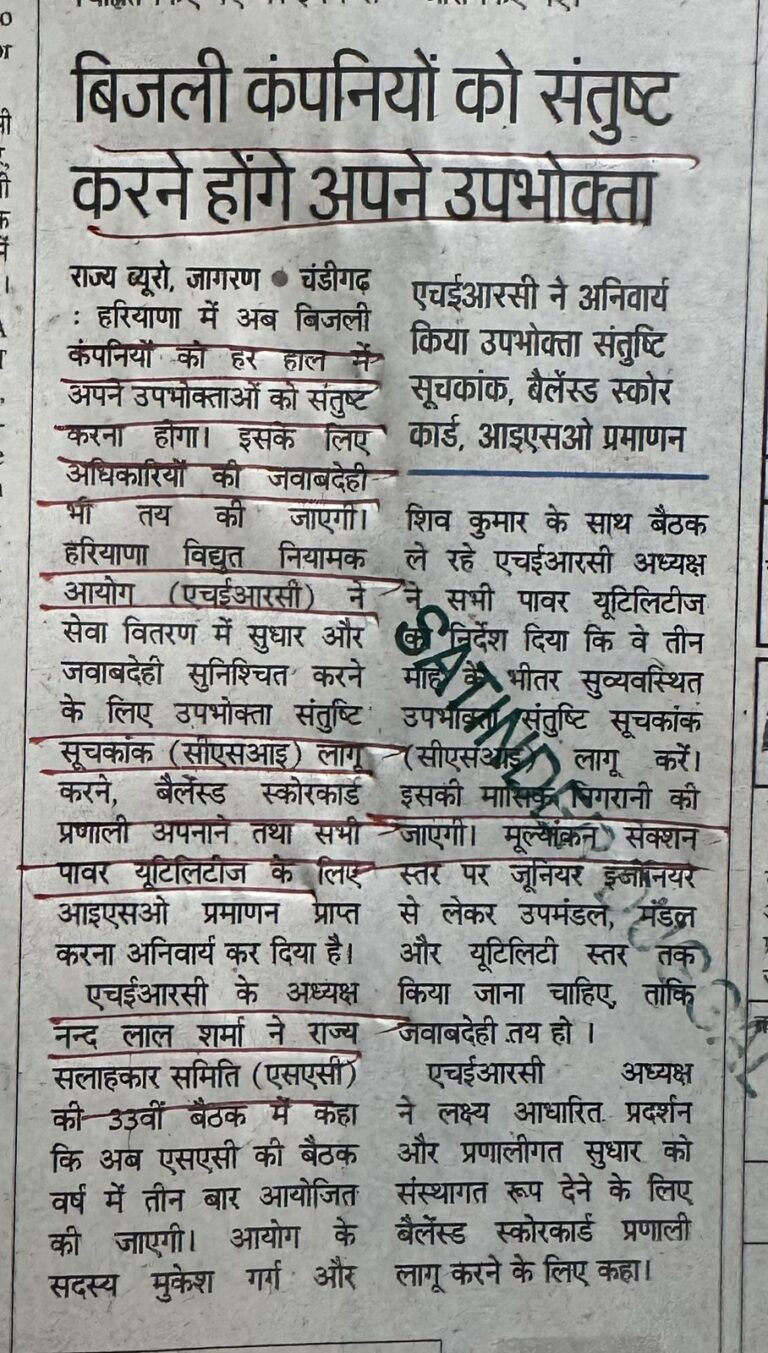 बिजली कंपनियों को संतुष्ट
करने होंगे अपने उपभोक्ता
राज्य ब्यूरो, जागरण ● चंडीगढ़
: हरियाणा में अब बिजली
कंपनियों को हर हाल में
अपने उपभोक्ताओं को संतुष्ट
करना होगा। इसके लिए
अधिकारियों की जवाबदेही
भी तय की जाएगी।
हरियाणा विद्युत नियामक
आयोग (एचईआरसी) ने
सेवा वितरण में सुधार और
जवाबदेही सुनिश्चित करने
के लिए उपभोक्ता संतुष्टि
सूचकांक (सीएसआइ) लागू
करने, बैलेंस्ड स्कोरकार्ड
प्रणाली अपनाने तथा सभी
पावर यूटिलिटीज के लिए
आइएसओ प्रमाणन प्राप्त
करना अनिवार्य कर दिया है।
एचईआरसी के अध्यक्ष
नन्द लाल शर्मा ने राज्य
सलाहकार समिति (एसएसी)
की 33वीं बैठक में कहा
कि अब एसएसी की बैठक
वर्ष में तीन बार आयोजित
की जाएगी। आयोग के
सदस्य मुकेश गर्ग और
एचईआरसी ने अनिवार्य
किया उपभोक्ता संतुष्टि
सूचकांक, बैलेंस्ड स्कोर
कार्ड, आइएसओ प्रमाणन
शिव कुमार के साथ बैठक
ले रहे एचईआरसी अध्यक्ष
ने सभी पावर यूटिलिटीज
को निर्देश दिया कि वे तीन
माह के भीतर सुव्यवस्थित
उपभोक्ता संतुष्टि सूचकांक
(सीएसआइ) लागू करें।
इसकी मासिक निगरानी की
जाएगी। मूल्यांकन सेक्शन
स्तर पर जूनियर इंजीनियर
से लेकर उपमंडल, मंडल
और यूटिलिटी स्तर तक
किया जाना चाहिए, ताकि
जवाबदेही तय हो ।
एचईआरसी अध्यक्ष
ने लक्ष्य आधारित प्रदर्शन
और प्रणालीगत सुधार को
संस्थागत रूप देने के लिए
बैलेंस्ड स्कोरकार्ड प्रणाली
लागू करने के लिए कहा।